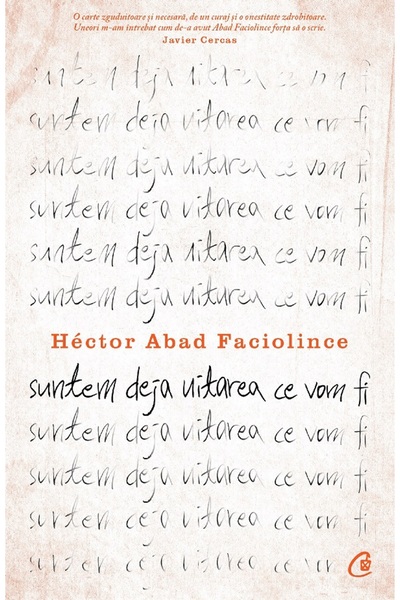 O carte zguduitoare și necesară, de un curaj și o onestitate zdrobitoare.
Uneori m-am întrebat cum de-a avut Abad Faciolince forța să o scrie.
Javier Cercas
suntem deja uitarea ce vom fi
suntem deja uitarea ce vom fi
suntem deja uitarea ce vom fi
suntem deja uitarea ce vom fi
suntem deja uitarea ce vom fi
suntem deja uitarea ce vom fi
Héctor Abad Faciolince
suntem deja uitarea ce vom fi
suntem deja uitarea ce vom fi
suntem deja uitarea ce vom fi
suntem deja uitarea ce vom fi
suntem deja uitarea ce vom fi